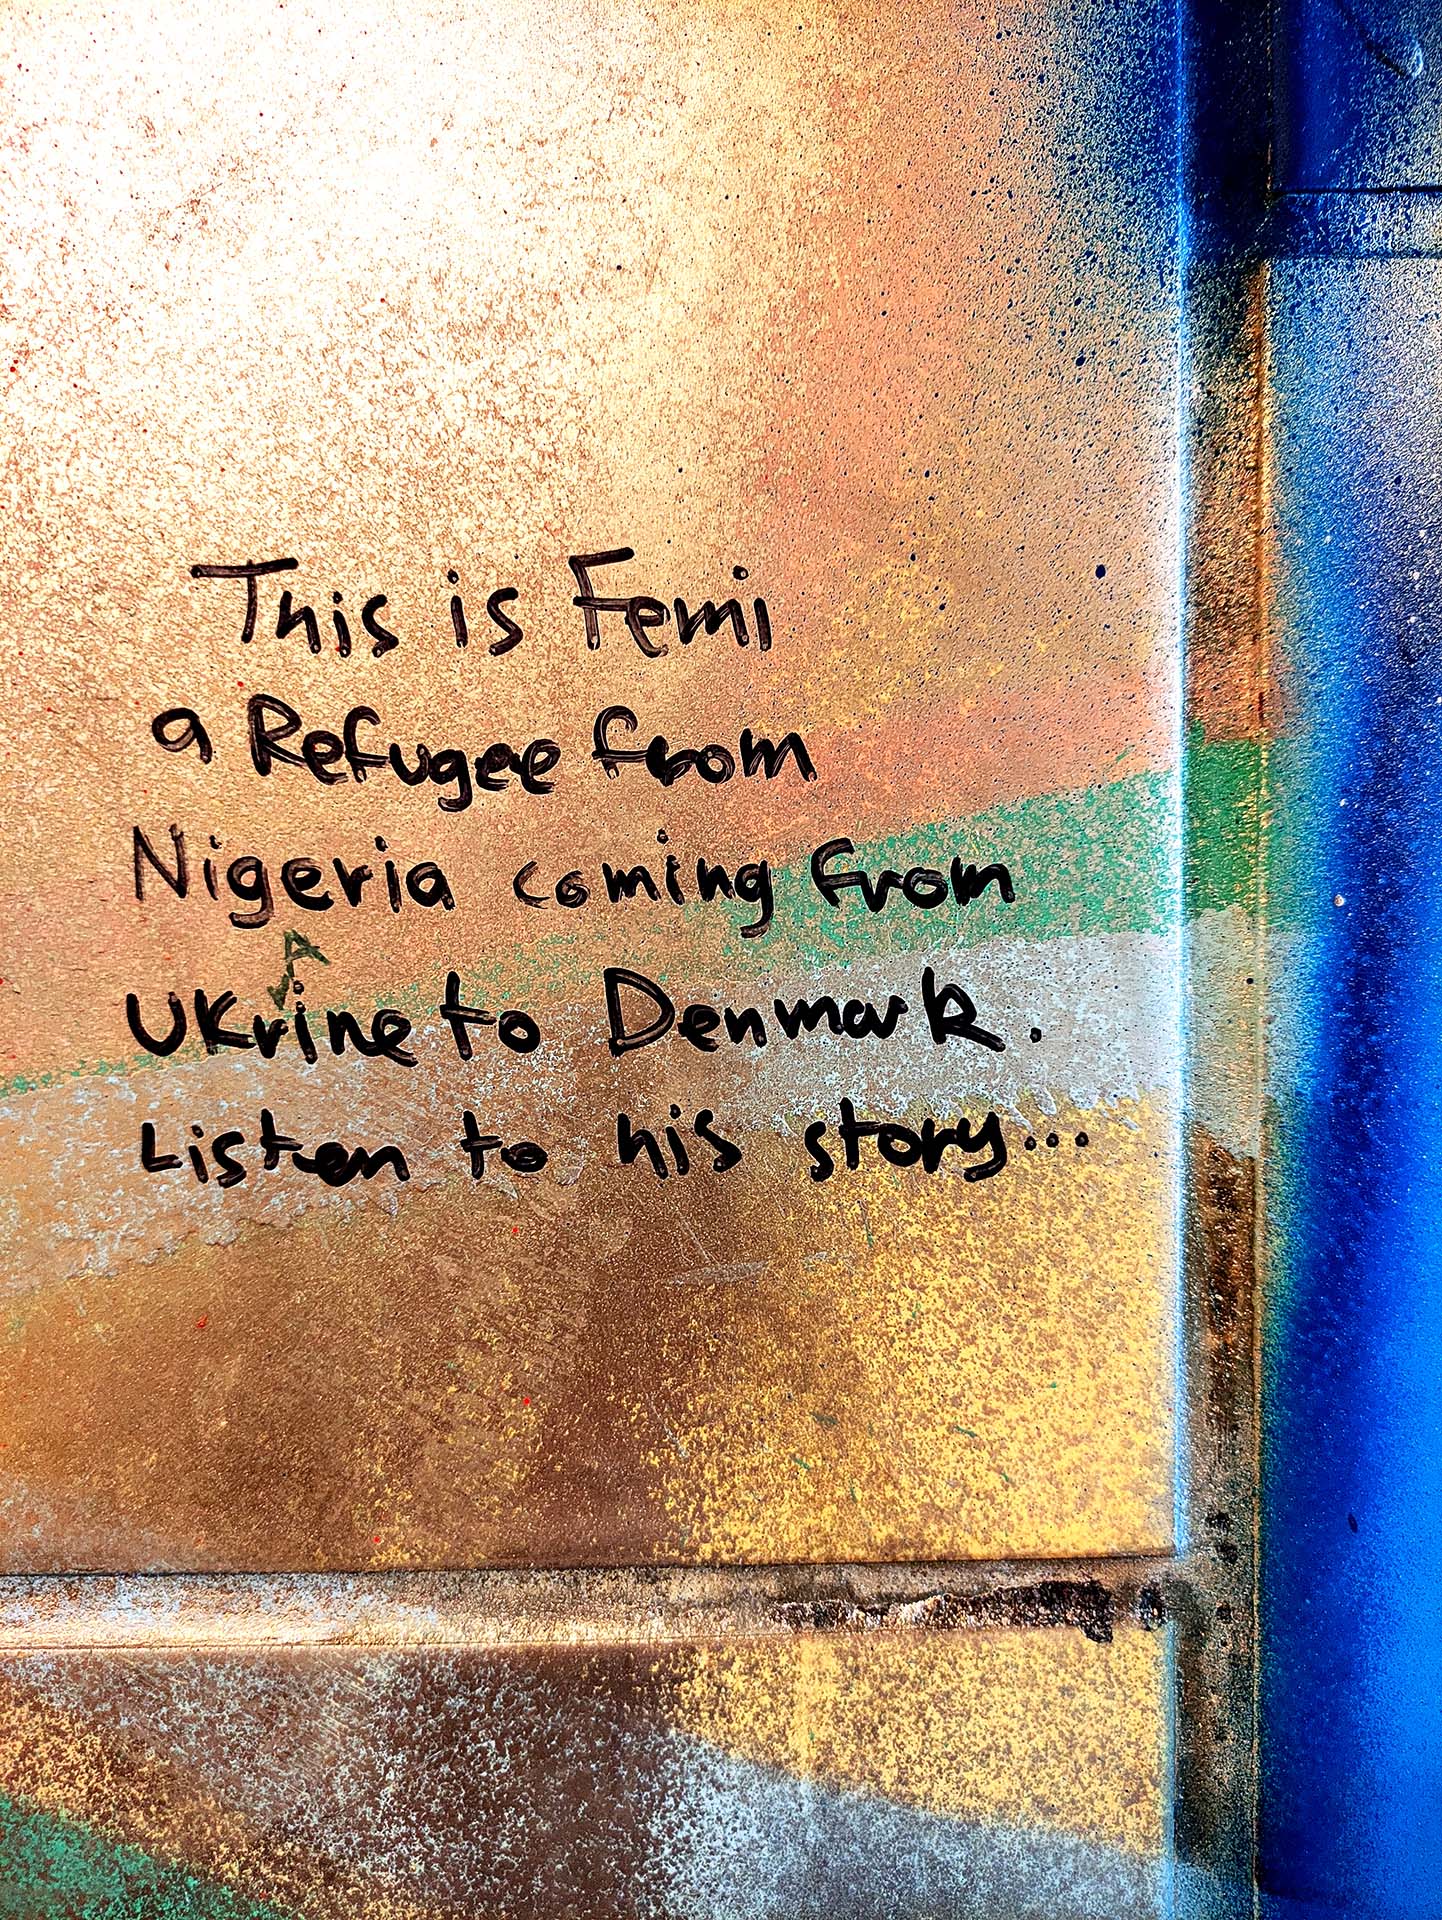 This is Femi
a Refugee from
Nigeria coming from
A
UKrine to Denmark.
Listen to his story...